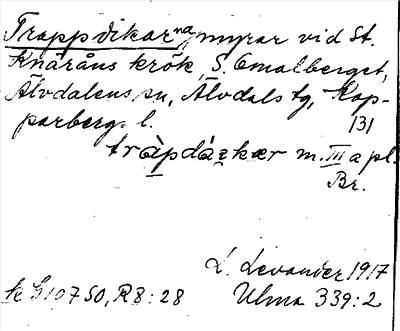 Trappdikarna, myrar vid St.
Knäråns krök, S. Emalberget,
Älvdalens sn, Älvdals tg, Kop-
parbergs l. 131
tràpdáʒkær m. III a pl.
Br.
L. Levander 1917
k G10750, R8:28 Ulma 339:2